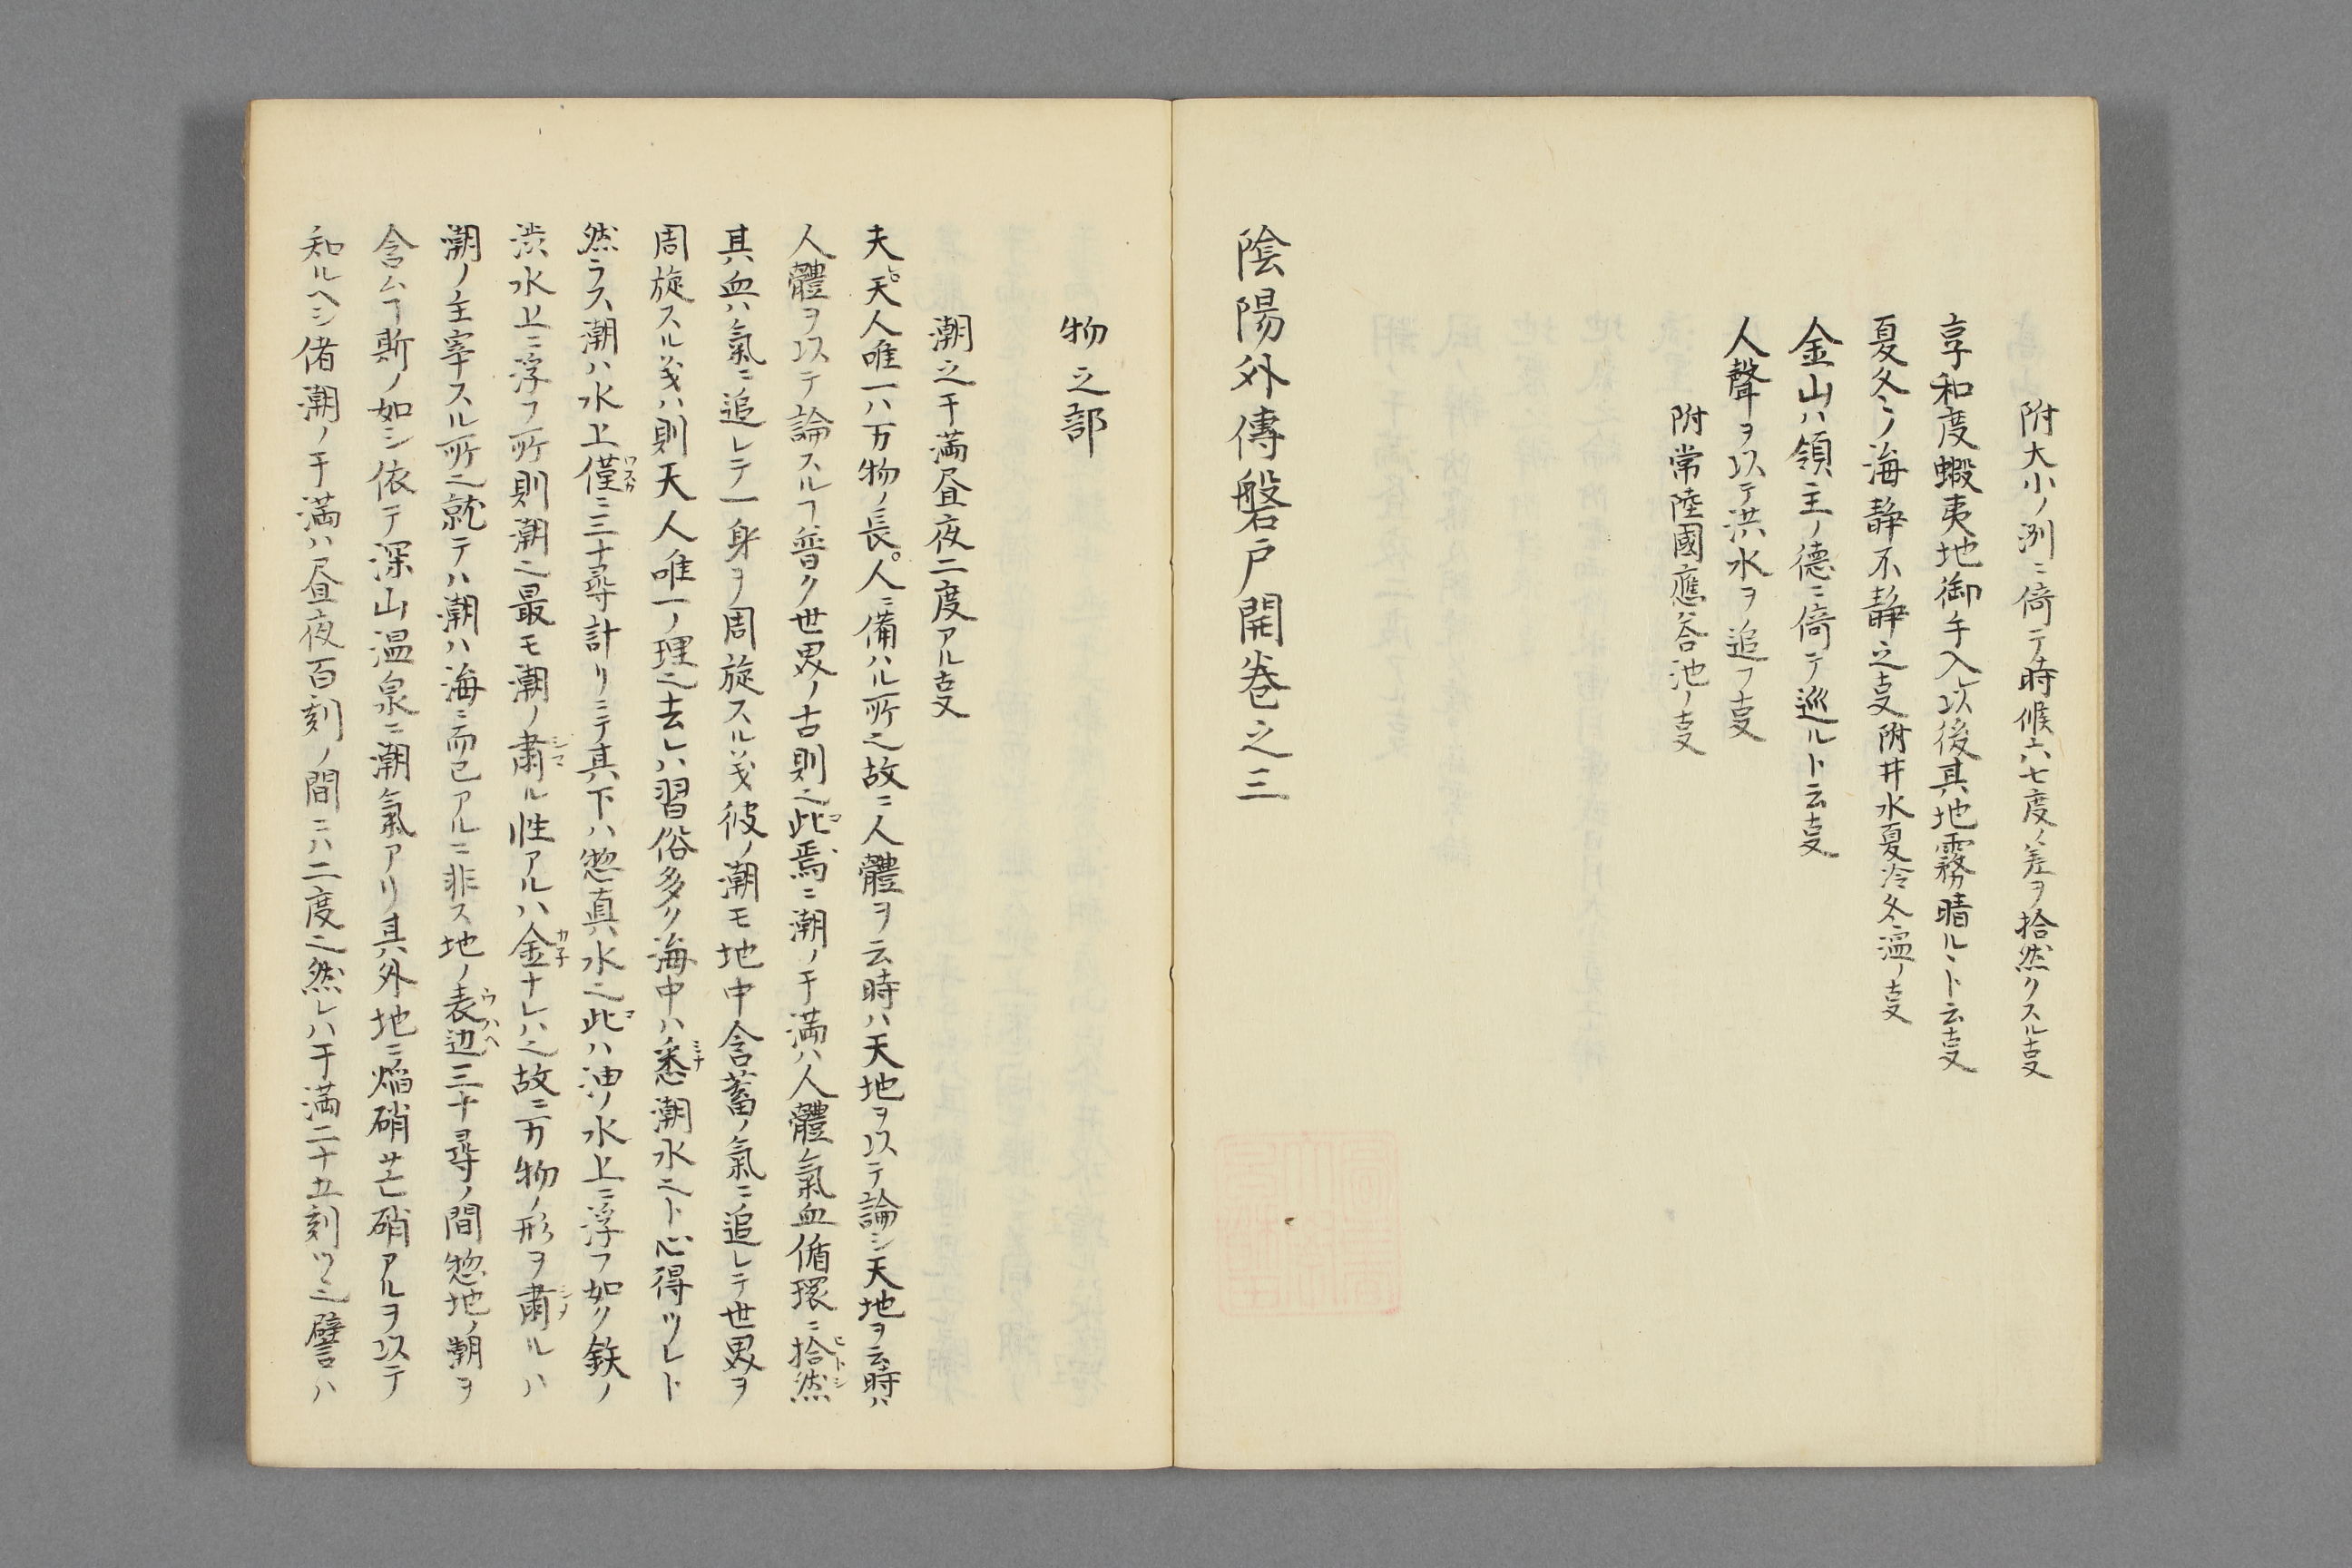 附大小ノ洲ニ倚テ時候六七度ノ差ヲ拾然クスル㕝
享和度蝦夷地御手入レ以後其地霧晴ルヽト云㕝
夏冬ノ海静不静之㕝附井水夏冷冬温ノ㕝
金山ハ領主ノ德ニ倚テ巡ルト云㕝
人聲ヲ以テ洪水ヲ追フ㕝
附常陸國應答池ノ㕝
陰陽外傳磐戸開巻之三
物之部
潮之干満昼夜二度アル㕝
夫レ天人唯一ハ万物ノ長人ニ備ハル所也故ニ人體ヲ云時ハ天地ヲ以テ論シ天地ヲ云時ハ
人體ヲ以テ論スルヿ普ク世界ノ古則也此焉ニ潮ノ干満ハ人體氣血循環ニ拾然
其血ハ氣ニ追レテ一身ヲ周旋スル義彼ノ潮モ地中含蓄ノ氣ニ追レテ世界ヲ
周旋スル義ハ則天人唯一ノ理也去レハ習俗多ク海中ハ悉潮水也ト心得ツレト
然ラス潮ハ水上僅ニ三十尋計リニテ其下ハ惣真水也此ハ油ツ水上ニ浮フ如ク鉄ノ
渋水上ニ浮フ所則潮也最モ潮ノ肅ル性アルハ金ナレハ也故ニ万物ノ形ヲ肅ルハ
潮ノ主宰スル所也就テハ潮ハ海ニ而已アルニ非ス地ノ表辺三十尋ノ間惣地ノ潮ヲ
含ムヿ斯ノ如シ依テ深山温泉ニ潮氣アリ其外地ニ焔硝芒硝アルヲ以テ
知ルヘシ偖潮ノ干満ハ昼夜百刻ノ間ニハ二度也然レハ干満二十五刻ツヽ也譬ハ